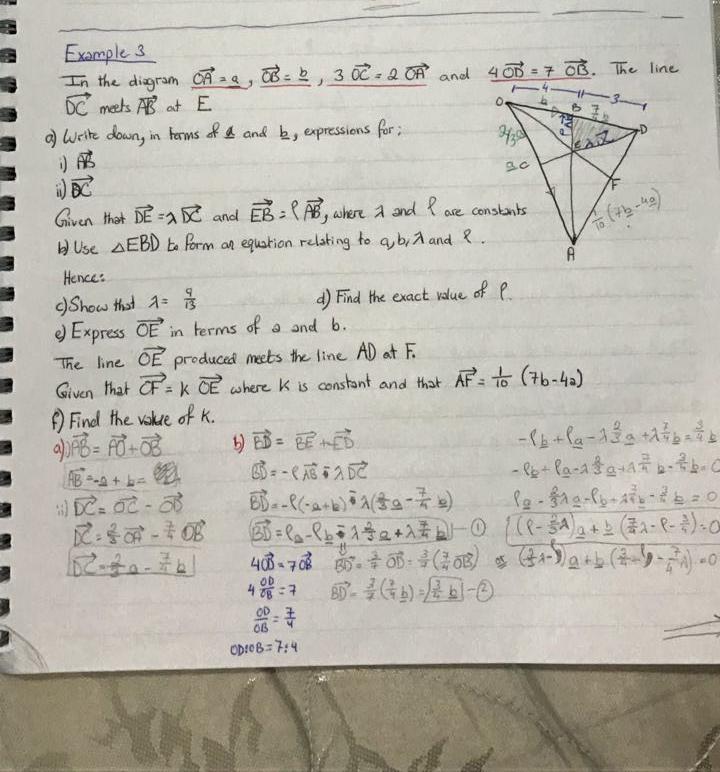 Example 3
In the diagram OA = a, OB = b, 3 OC = 2 OA and 4 OD = 7 OB. The line
DC meets AB at E
a) Write down, in terms of a and b, expressions for:
i) AB
ii) DC
Given that DE = λ DC and EB = ℓ AB, where λ and ℓ are constants
b) Use △EBD to form an equation relating to a, b, λ and ℓ.
Hence:
c) Show that λ = 9/13
d) Find the exact value of ℓ.
e) Express OE in terms of a and b.
The line OE produced meets the line AD at F.
Given that OF = k OE where K is constant and that AF = 1/10 (7b-4a)
f) Find the value of K.
O
4
3
b
B
D
C
E
F
A
1/10 (7b-4a)
a) i) AB = AO + OB
AB = -a + b =
ii) DC = OC - OD
DC = 2/3 OA - 7/4 OB
DC = 2/3 a - 7/4 b
b) BD = BE + ED
BD = -ℓ AB - λ DC
BD = -ℓ(-a+b) - λ(2/3 a - 7/4 b)
BD = ℓa - ℓb - λ 2/3 a + λ 7/4 b - ①
4OD = 7OB
4 OD/OB = 7
OD/OB = 7/4
OD:OB = 7:4
BD = 3/7 OD = 3/7 (7/4 OB)
BD = 3/7 (7/4 b) = 3/4 b - ②
-ℓb + ℓa - λ 2/3 a + λ 7/4 b = 3/4 b
-ℓb + ℓa - λ 2/3 a + λ 7/4 b - 3/4 b = 0
ℓa - 2/3 λa - ℓb + λ 7/4 b - 3/4 b = 0
(ℓ - 2/3 λ) a + b (7/4 λ - ℓ - 3/4) = 0